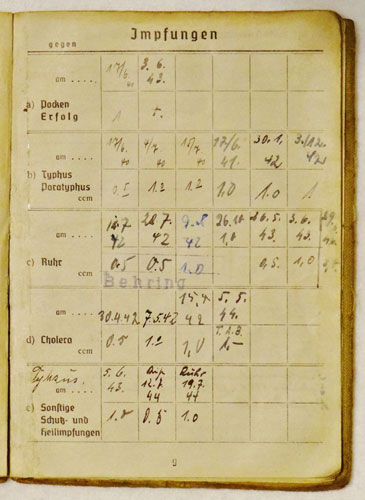 Impfungen
gegen
17/6. 3. 6.
am .... 40 43.
a) Pocken
Erfolg 1
17/6 4/7 15/7 17/6. 30. 1. 3./12.
am .... 40 40 40 41. 42 42
b) Typhus
Paratyphus
ccm 0.5 1.2 1.2 1,0 1.0 1.
7. 28.7. 26.10. 26.5. 3.6.
am .... 42 42 42 43. 43.
c) Ruhr 0.5 0.5 1.0 0,5 1,0
ccm
Behring
15.4. 5. 5.
am .... 30.4.42 7.5.42 42 44.
d) Cholera 0.5 1.2 1,0
ccm
5. 6. Ruhr
43. 12.7. 19.7.
44 44
e) Sonstige
Schutz- und 1.0 0.5 1.0
Heilimpfungen
9